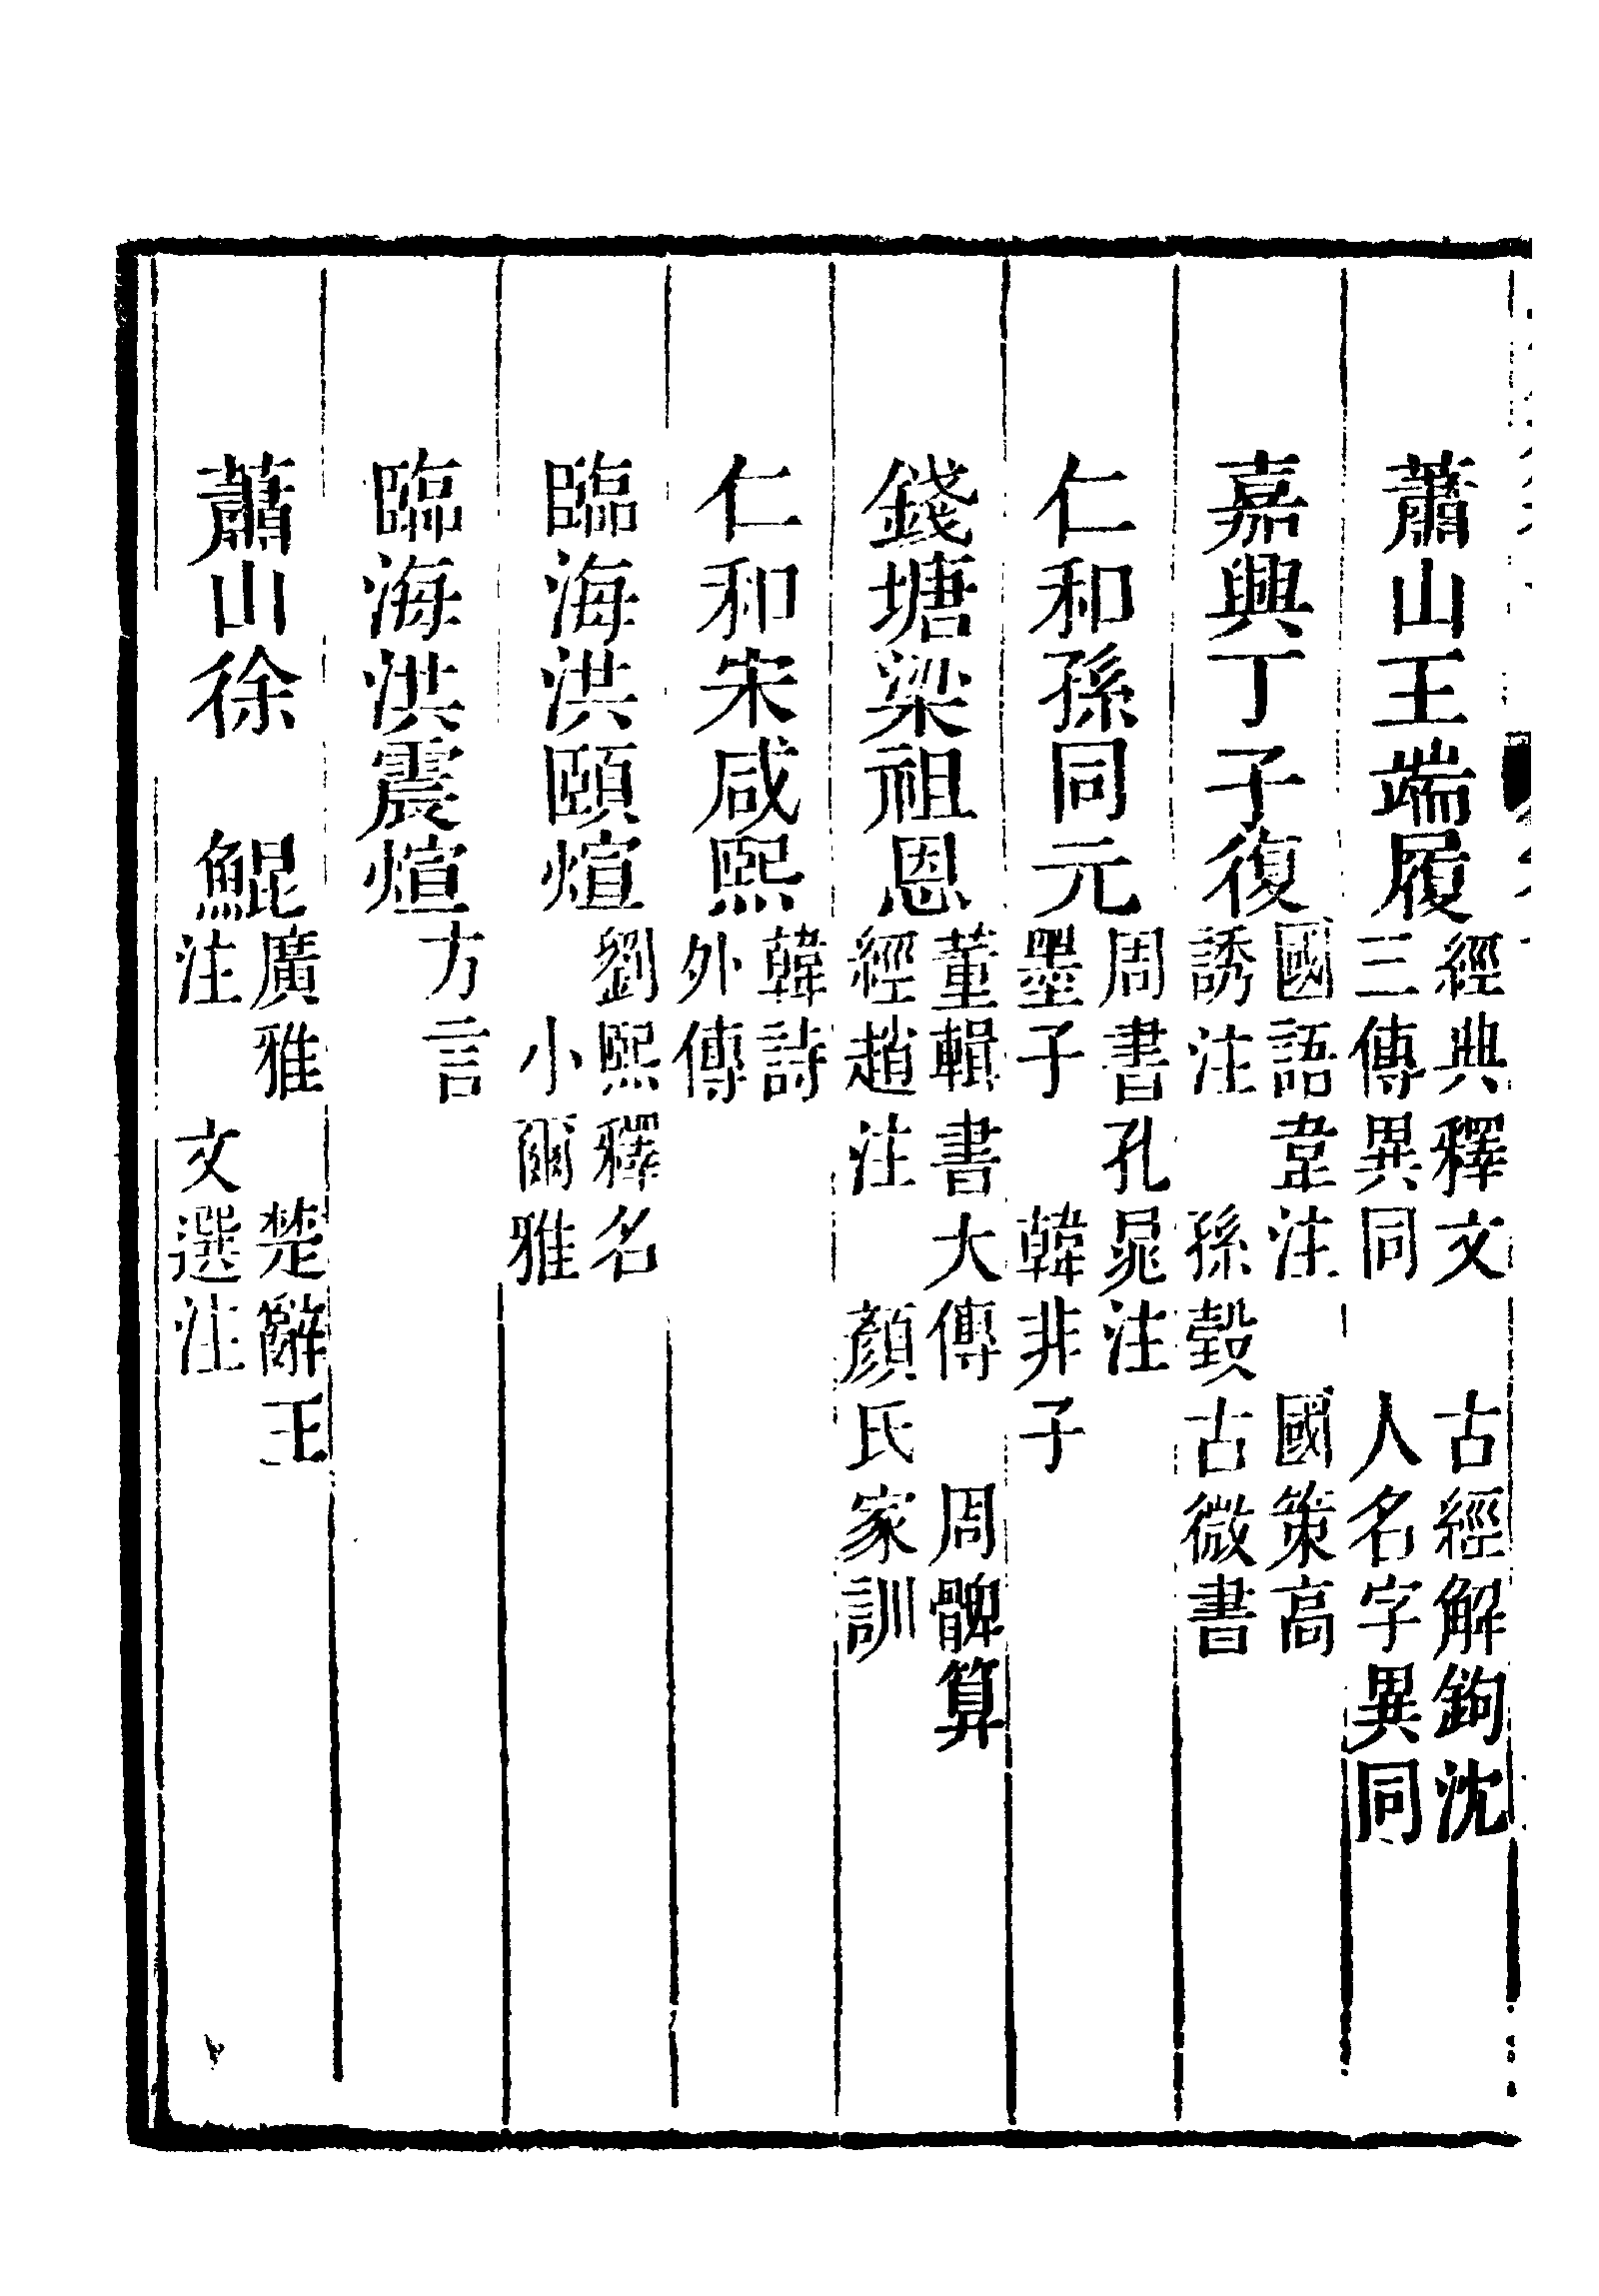 蕭山王端履經典釋文　古經解鉤沈
三傳異同　人名字異同
嘉興丁子復國語韋注　國策高
誘注　孫瑴古微書
仁和孫同元周書孔晁注
墨子　韓非子
錢塘梁祖恩董輯書大傳　周髀算
經趙注　顏氏家訓
仁和宋咸熙韓詩
外傳
臨海洪頤煊劉熙釋名
小爾雅
臨海洪震煊方言
蕭山徐　鯤廣雅　楚辭王
注　文選注